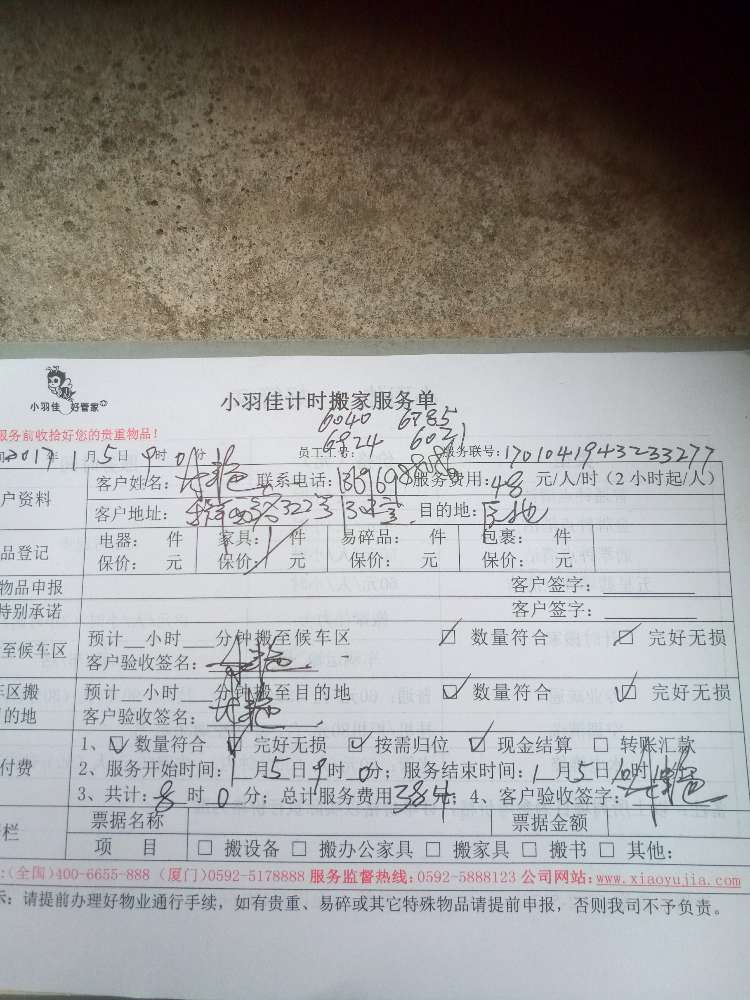 小羽佳 好管家
小羽佳计时搬家服务单
6040 6785
服务前收拾好您的贵重物品!
6824 6021
2017年1月5日9时0分 员工工号: 服务联号:1701041943233277
户资料 客户姓名: 联系电话: 服务费用:48元/人/时(2小时起/人)
客户地址: 目的地:
品登记 电器: 件 家具: 件 易碎品: 件 包裹: 件
保价: 元 保价: 元 保价: 元 保价: 元
物品申报 客户签字:
特别承诺 客户签字:
至候车区 预计__小时__分钟搬至候车区 ☑ 数量符合 ☑ 完好无损
客户验收签名:
车区搬 预计__小时__分钟搬至目的地 ☑ 数量符合 ☑ 完好无损
的地 客户验收签名:
付费 1、☑ 数量符合 ☑ 完好无损 ☑ 按需归位 ☑ 现金结算 □ 转账汇款
2、服务开始时间:1月5日9时0分;服务结束时间:1月5日10时
3、共计:8时0分;总计服务费用384元;4、客户验收签字:
栏 票据名称 票据金额
项 目 □ 搬设备 □ 搬办公家具 □ 搬家具 □ 搬书 □ 其他:
:(全国)400-6655-888 (厦门)0592-5178888 服务监督热线:0592-5888123 公司网站:www.xiaoyujia.com
示:请提前办理好物业通行手续,如有贵重、易碎或其它特殊物品请提前申报,否则我司不予负责。